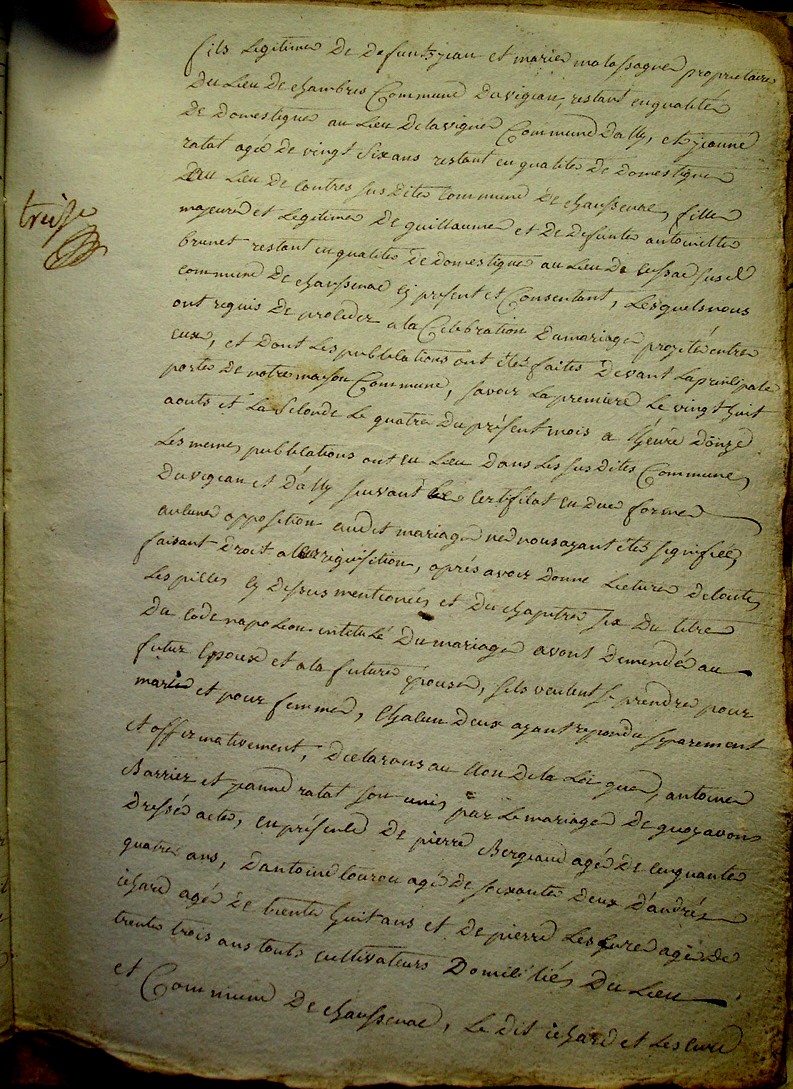 fils legitime de defunts jean et marie malassagne proprietaire
du lieu de chambres Commune du vigean, restant en qualité
de domestique au lieu de la vigne Commune d'ally, et jeanne
ratat agée de vingt six ans restant en qualité de domestique
au lieu de contres susdite commune de chaussenac, fille
treise
majeure et legitime de guillaume et de defunte antoinette
brunet restant en qualité de domestique au lieu de
commune de chaussenac cy present et Consentant, Lesquels nous
ont requis de proceder a la Celebration du mariage projeté entre
eux, et dont les publications ont étés faites devant la principale
porte de notre maison Commune, savoir la premiere le vingt huit
aouts et la seconde le quatre du présent mois a l'heure d'onze
les memes publications ont eu lieu dans les susdites Communes
du vigean et d'ally suivant les certificat en due forme
aucune opposition audit mariage ne nous ayant étés signifiée,
faisant droit a leur riquisition, aprés avoir donné lecture de toutes
les pieces cy dessus mentionees et du chapitre six du titre
du code napoleon intitulé du mariage avons demandé au
futur Epoux et a la future épouse, s'ils veulent se prendre pour
marie et pour femme, chacun deux ayant repondu separement
et affirmativement, declarons au Nom de la Loi que, antoine
Barrier et jeanne ratat son unis par le mariage de quoy avons
dressé acte, en présence de pierre Bergeaud agé de cinquante
quatre ans, d'antoine courou agé de soixante deux d'andrés
ichard agé de trente huit ans et de pierre Lescure agé de
trente trois ans touts cultivateurs Domiciliés du Lieu
et Commune de chaussenac, le dit ichard et Lescure